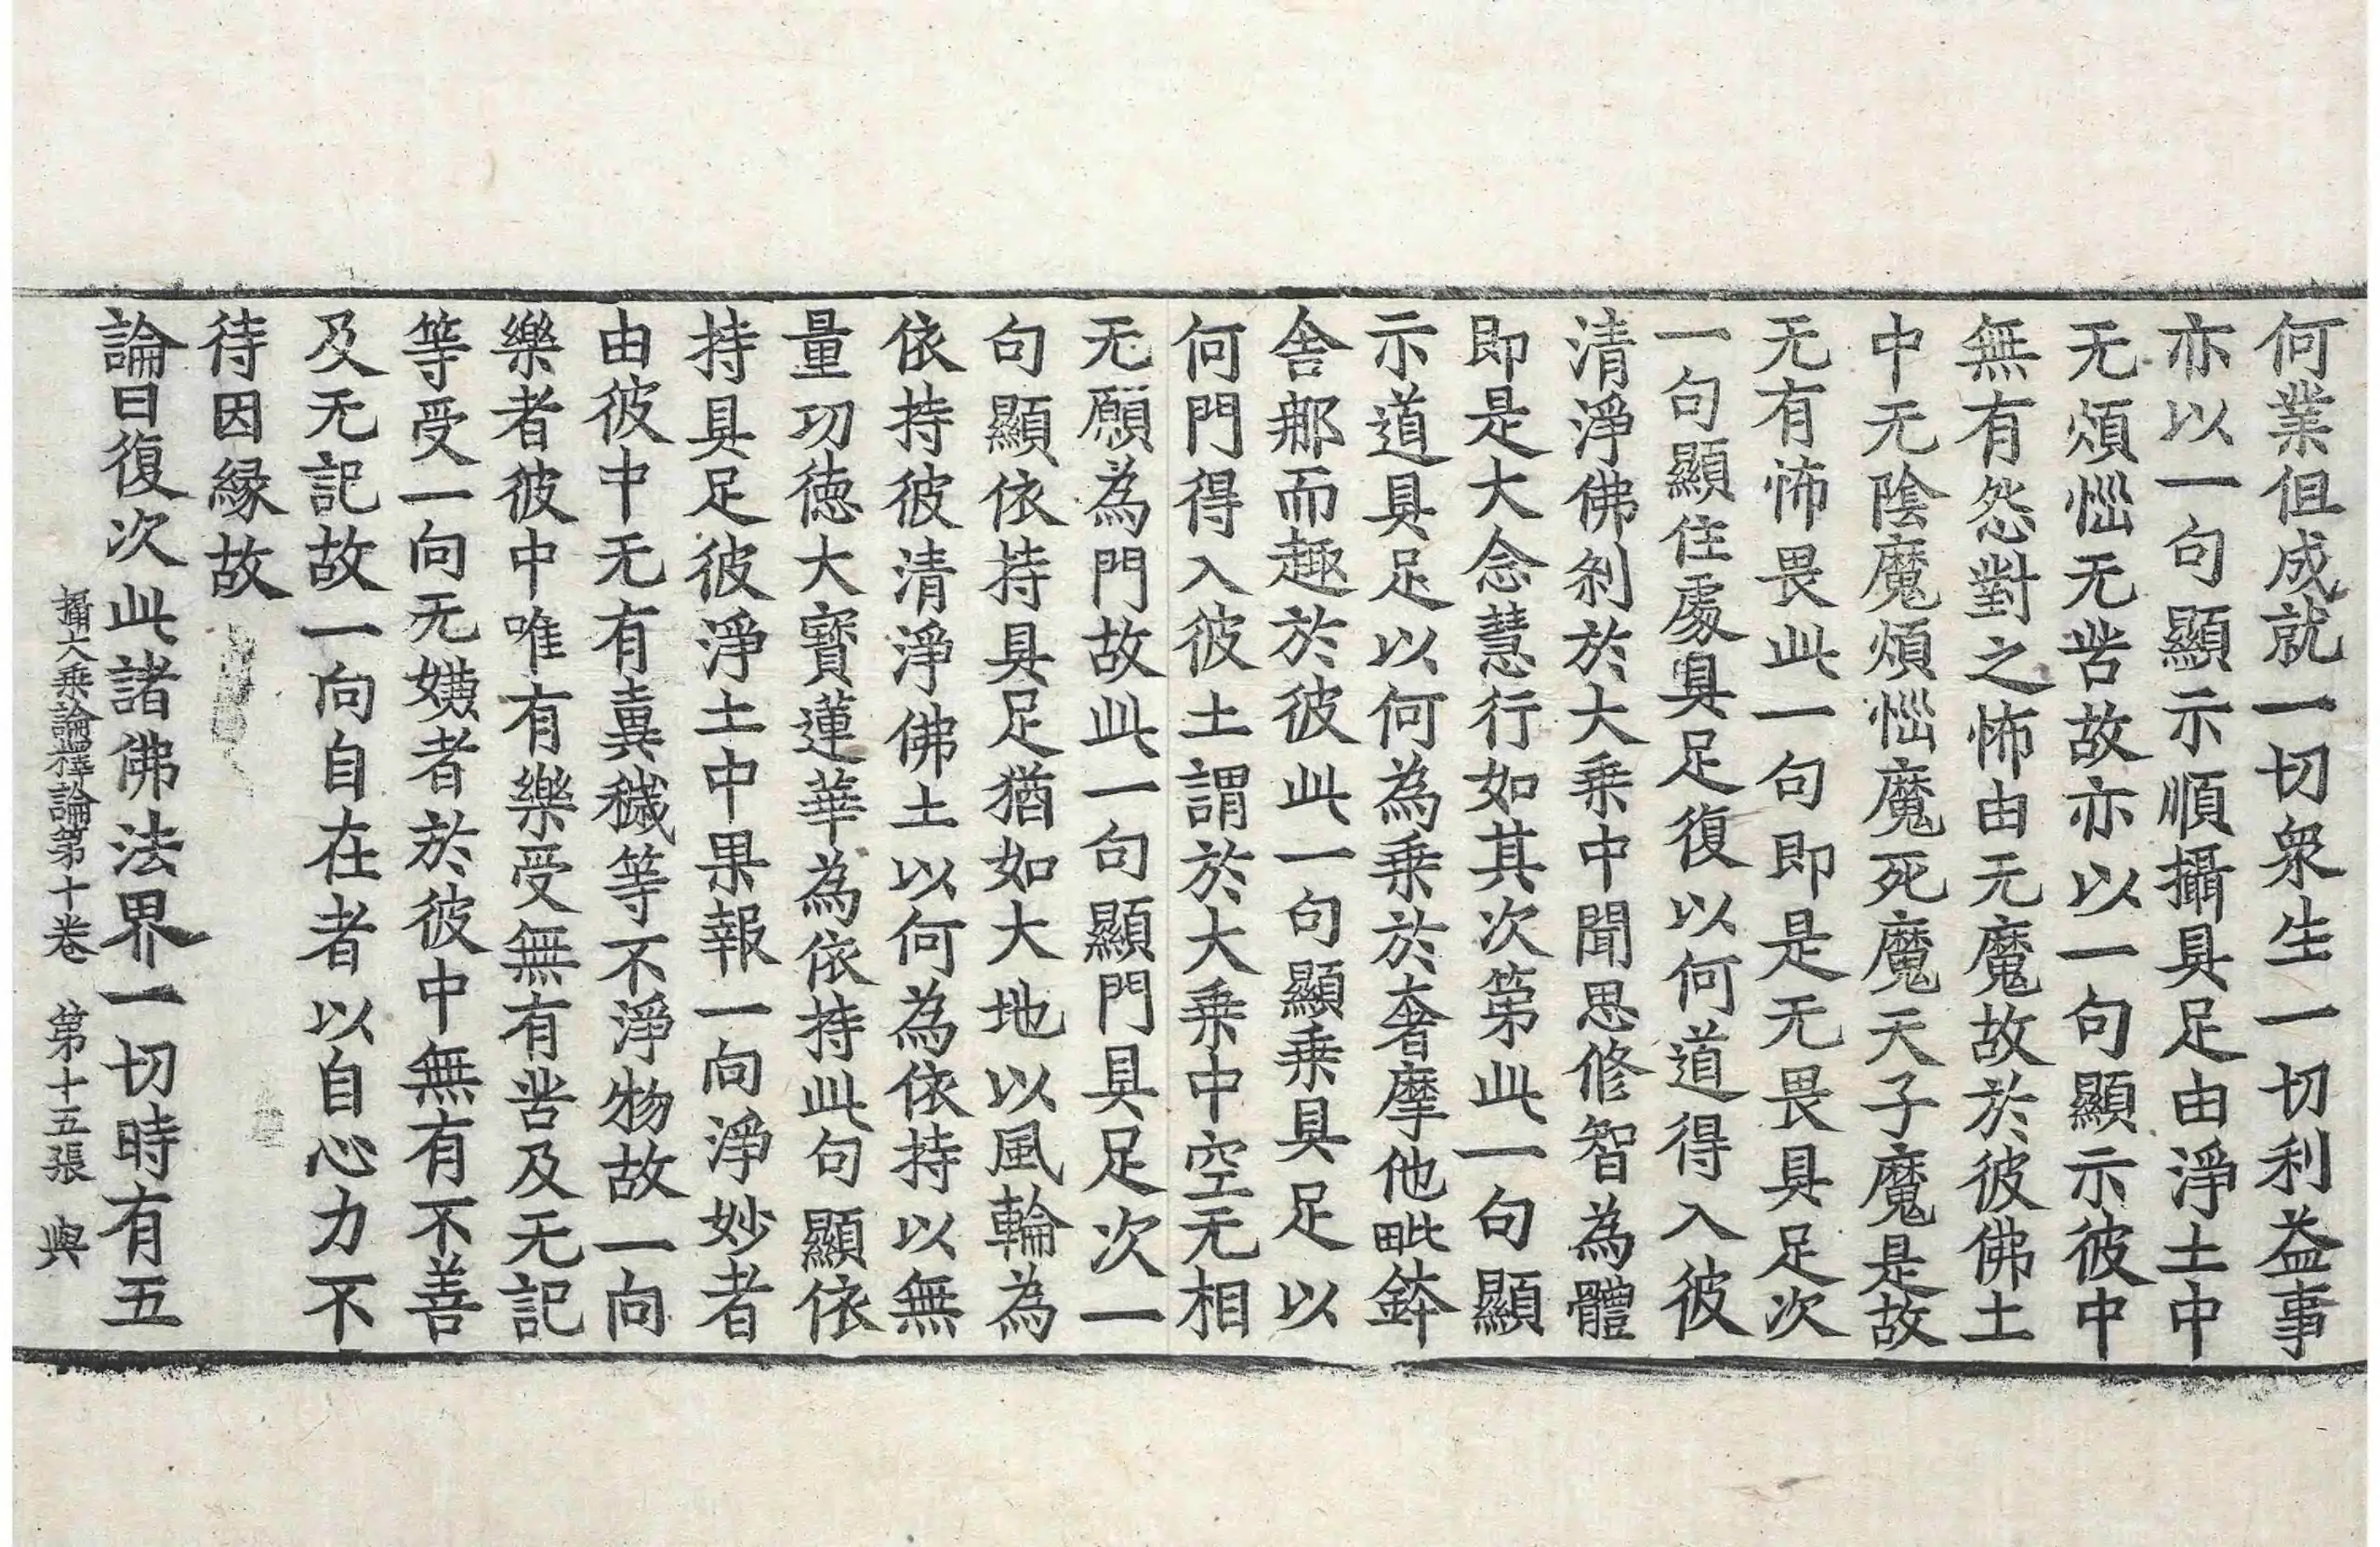 何業但成就一切衆生一切利益事
亦以一句顯示順攝具足由淨土中
无煩惱无苦故亦以一句顯示彼中
無有怨對之怖由无魔故於彼佛土
中无陰魔煩惱魔死魔天子魔是故
无有怖畏此一句即是无畏具足次
一句顯住處具足復以何道得入彼
清淨佛刹於大乗中聞思修智為體
即是大念慧行如其次第此一句顯
示道具足以何為乗於奢摩他毗鉢
舎那而趣於彼此一句顯乗具足以
何門得入彼土謂於大乗中空无相
无願為門故此一句顯門具足次一
句顯依持具足猶如大地以風輪為
依持彼清淨佛土以何為依持以無
量功徳大寳蓮華為依持此句顯依
持具足彼淨土中果報一向淨妙者
由彼中无有糞穢等不淨物故一向
樂者彼中唯有樂受無有苦及无記
等受一向无嫌者於彼中無有不善
及无記故一向自在者以自心力不
待因縁故
論曰復次此諸佛法界一切時有五
攝大乗論釋論第十卷 第十五張 與